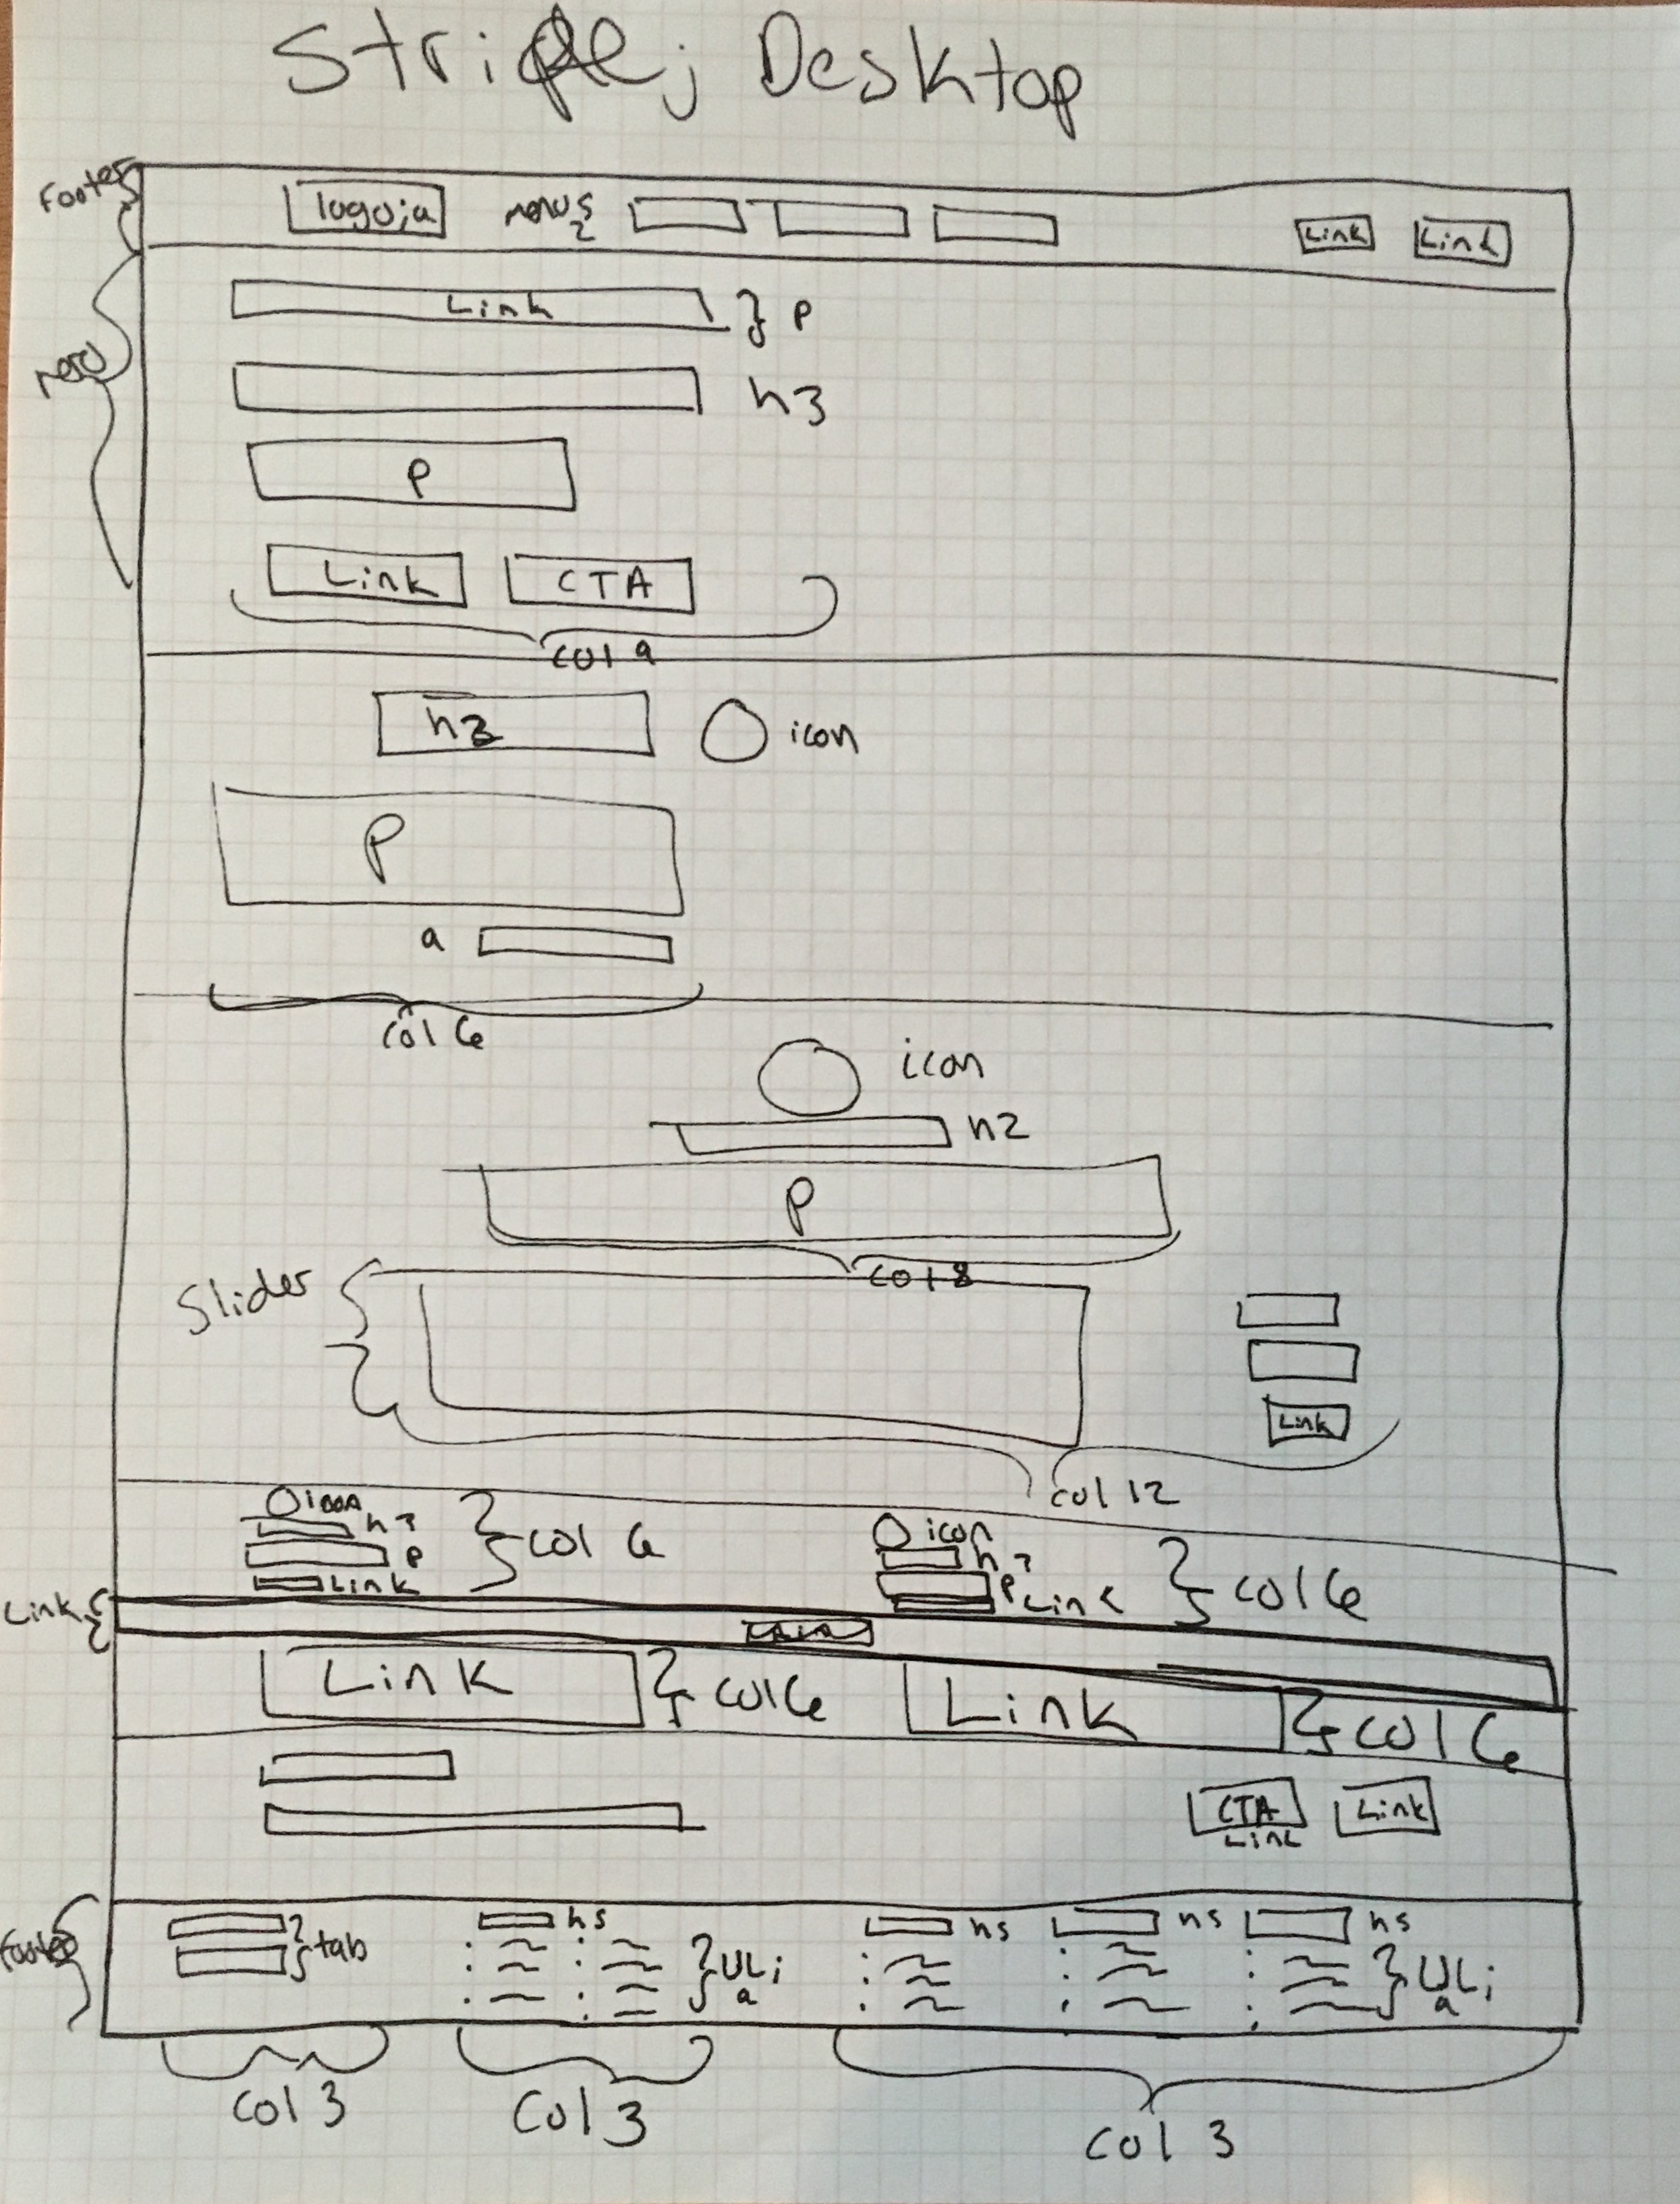 Stripe; Desktop
Footer
logo;a menus Link Link
Link } P
h3
P
Link CTA
col 9
h3 icon
P
a
col 6
icon
h2
P
col 8
Slider
Link
col 12
icon
P
Link
col 6
icon
P
Link
col 6
Link
Link col 6 Link col 6
CTA Link
Link
Footer
tab
h5 h5 h5 h5
ULi ULi
a a
col 3 col 3 col 3